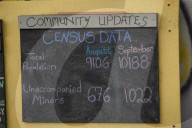 COMMUNITY UPDATES
CENSUS DATA
August September
Total
Population 9106 10188
Unaccompanied
Minors 676 1022